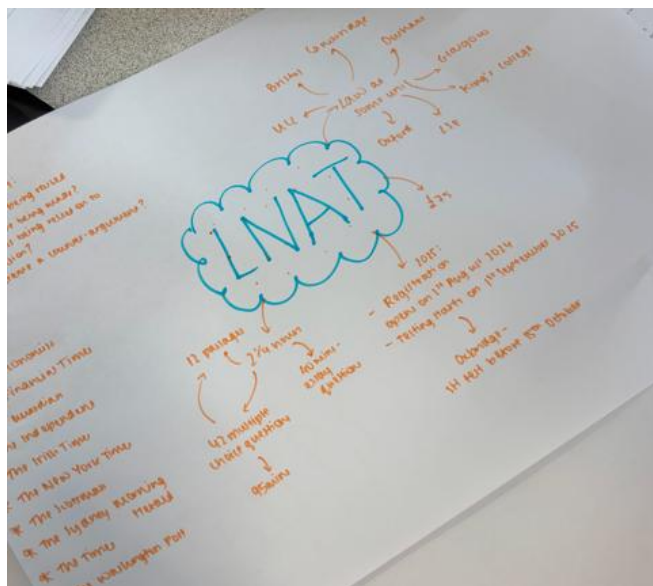 Cambridge
Durham
Glasgow
King's College
LSE
Oxford
UCL
Bristol
Law at
some uni
LNAT
£75
2025:
- Registration
opens on 1st August 2024
- Testing starts on 1st September 2025
Oxbridge -
sit test before 15th October
12 passages
2 1/4 hours
40 min -
essay
question
42 multiple
choice question
95min
being raised
being made?
being relied on to
a counter-argument?
Economist
Financial Times
Guardian
Independent
The Irish Time
* The New York Time
* The Scotsman
* The Sydney Morning
Herald
* The Times
Washington Post